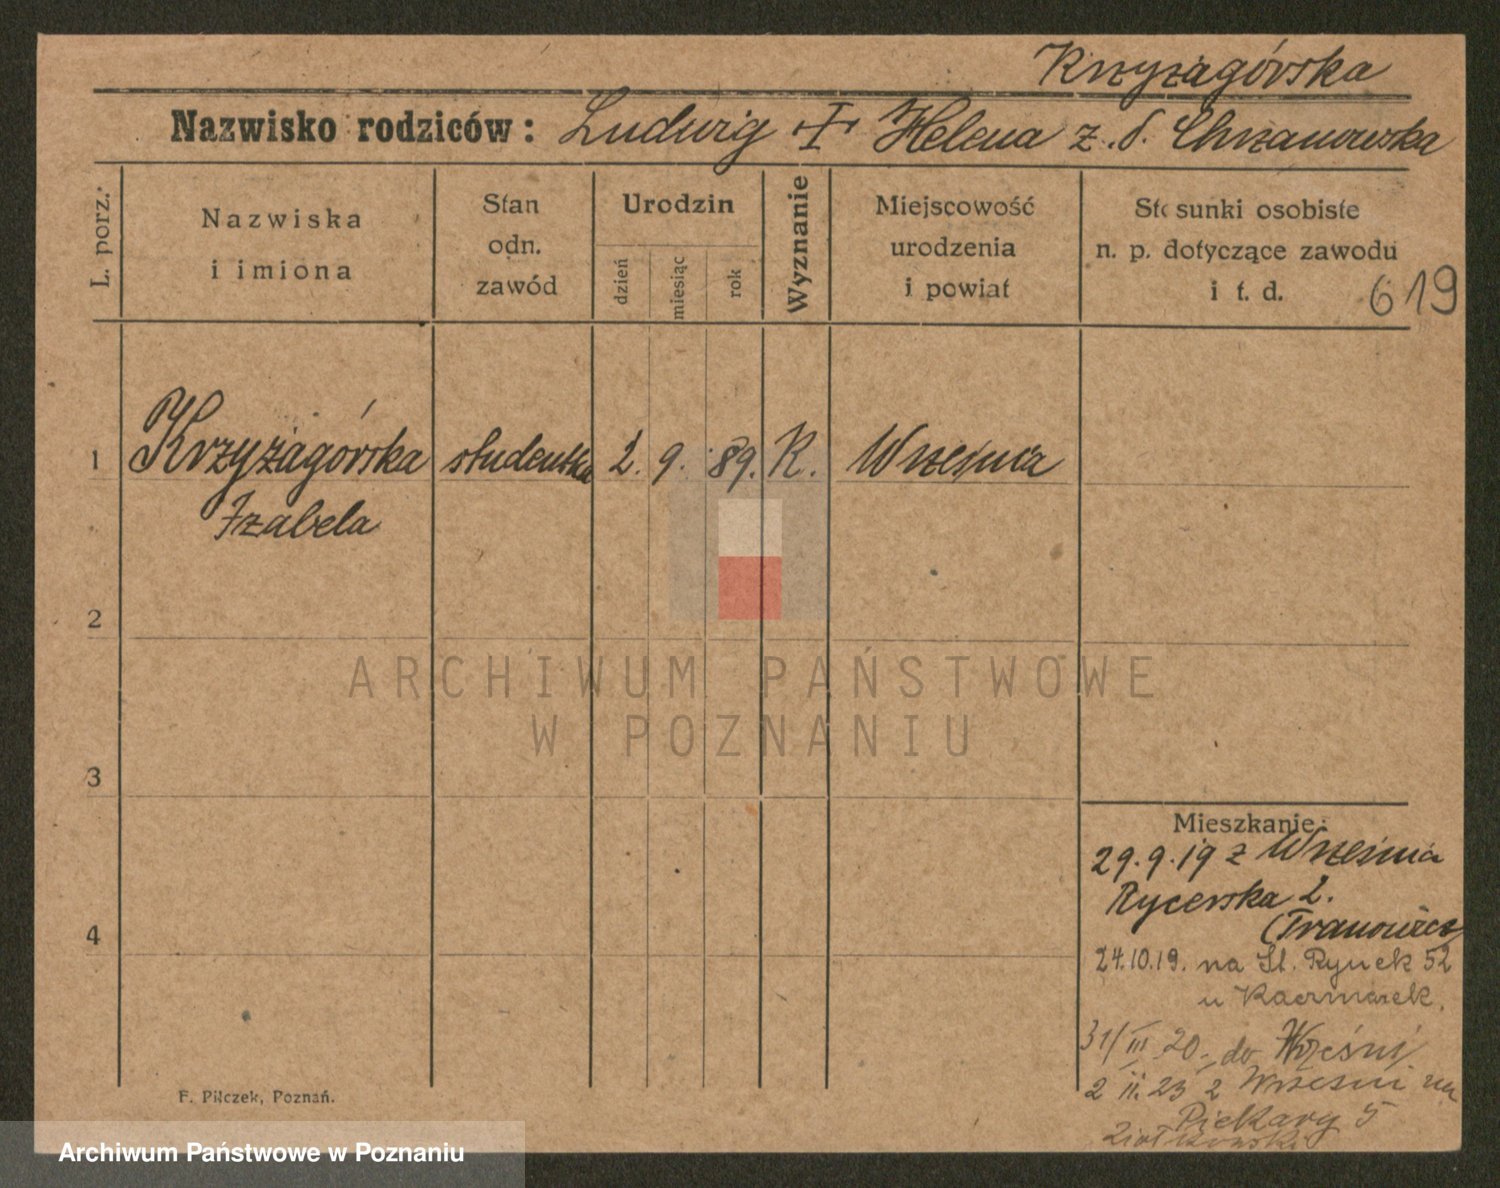 Krzyżagórska
Nazwisko rodziców: Ludwig + Helena z. d. Chrzanowska
L. porz.
Nazwiska
i imiona
Stan
odn.
zawód
Urodzin
dzień
miesiąc
rok
Wyznanie
Miejscowość
urodzenia
i powiat
Stosunki osobiste
n. p. dotyczące zawodu
i t. d.
619
1 Krzyżagórska studentka 2. 9. 89. K. Września
Izabela
2
3
4
ARCHIWUM PAŃSTWOWE
W POZNANIU
Mieszkanie:
29.9.19 z Września
Rycerska 2.
24.10.19. na St. Rynek 52
u Kaczmarek.
31/III 20. do Wrześni
2 II. 23 z Wrześni na
Piekary 5
Ziółkowski
F. Pilczek, Poznań.
Archiwum Państwowe w Poznaniu